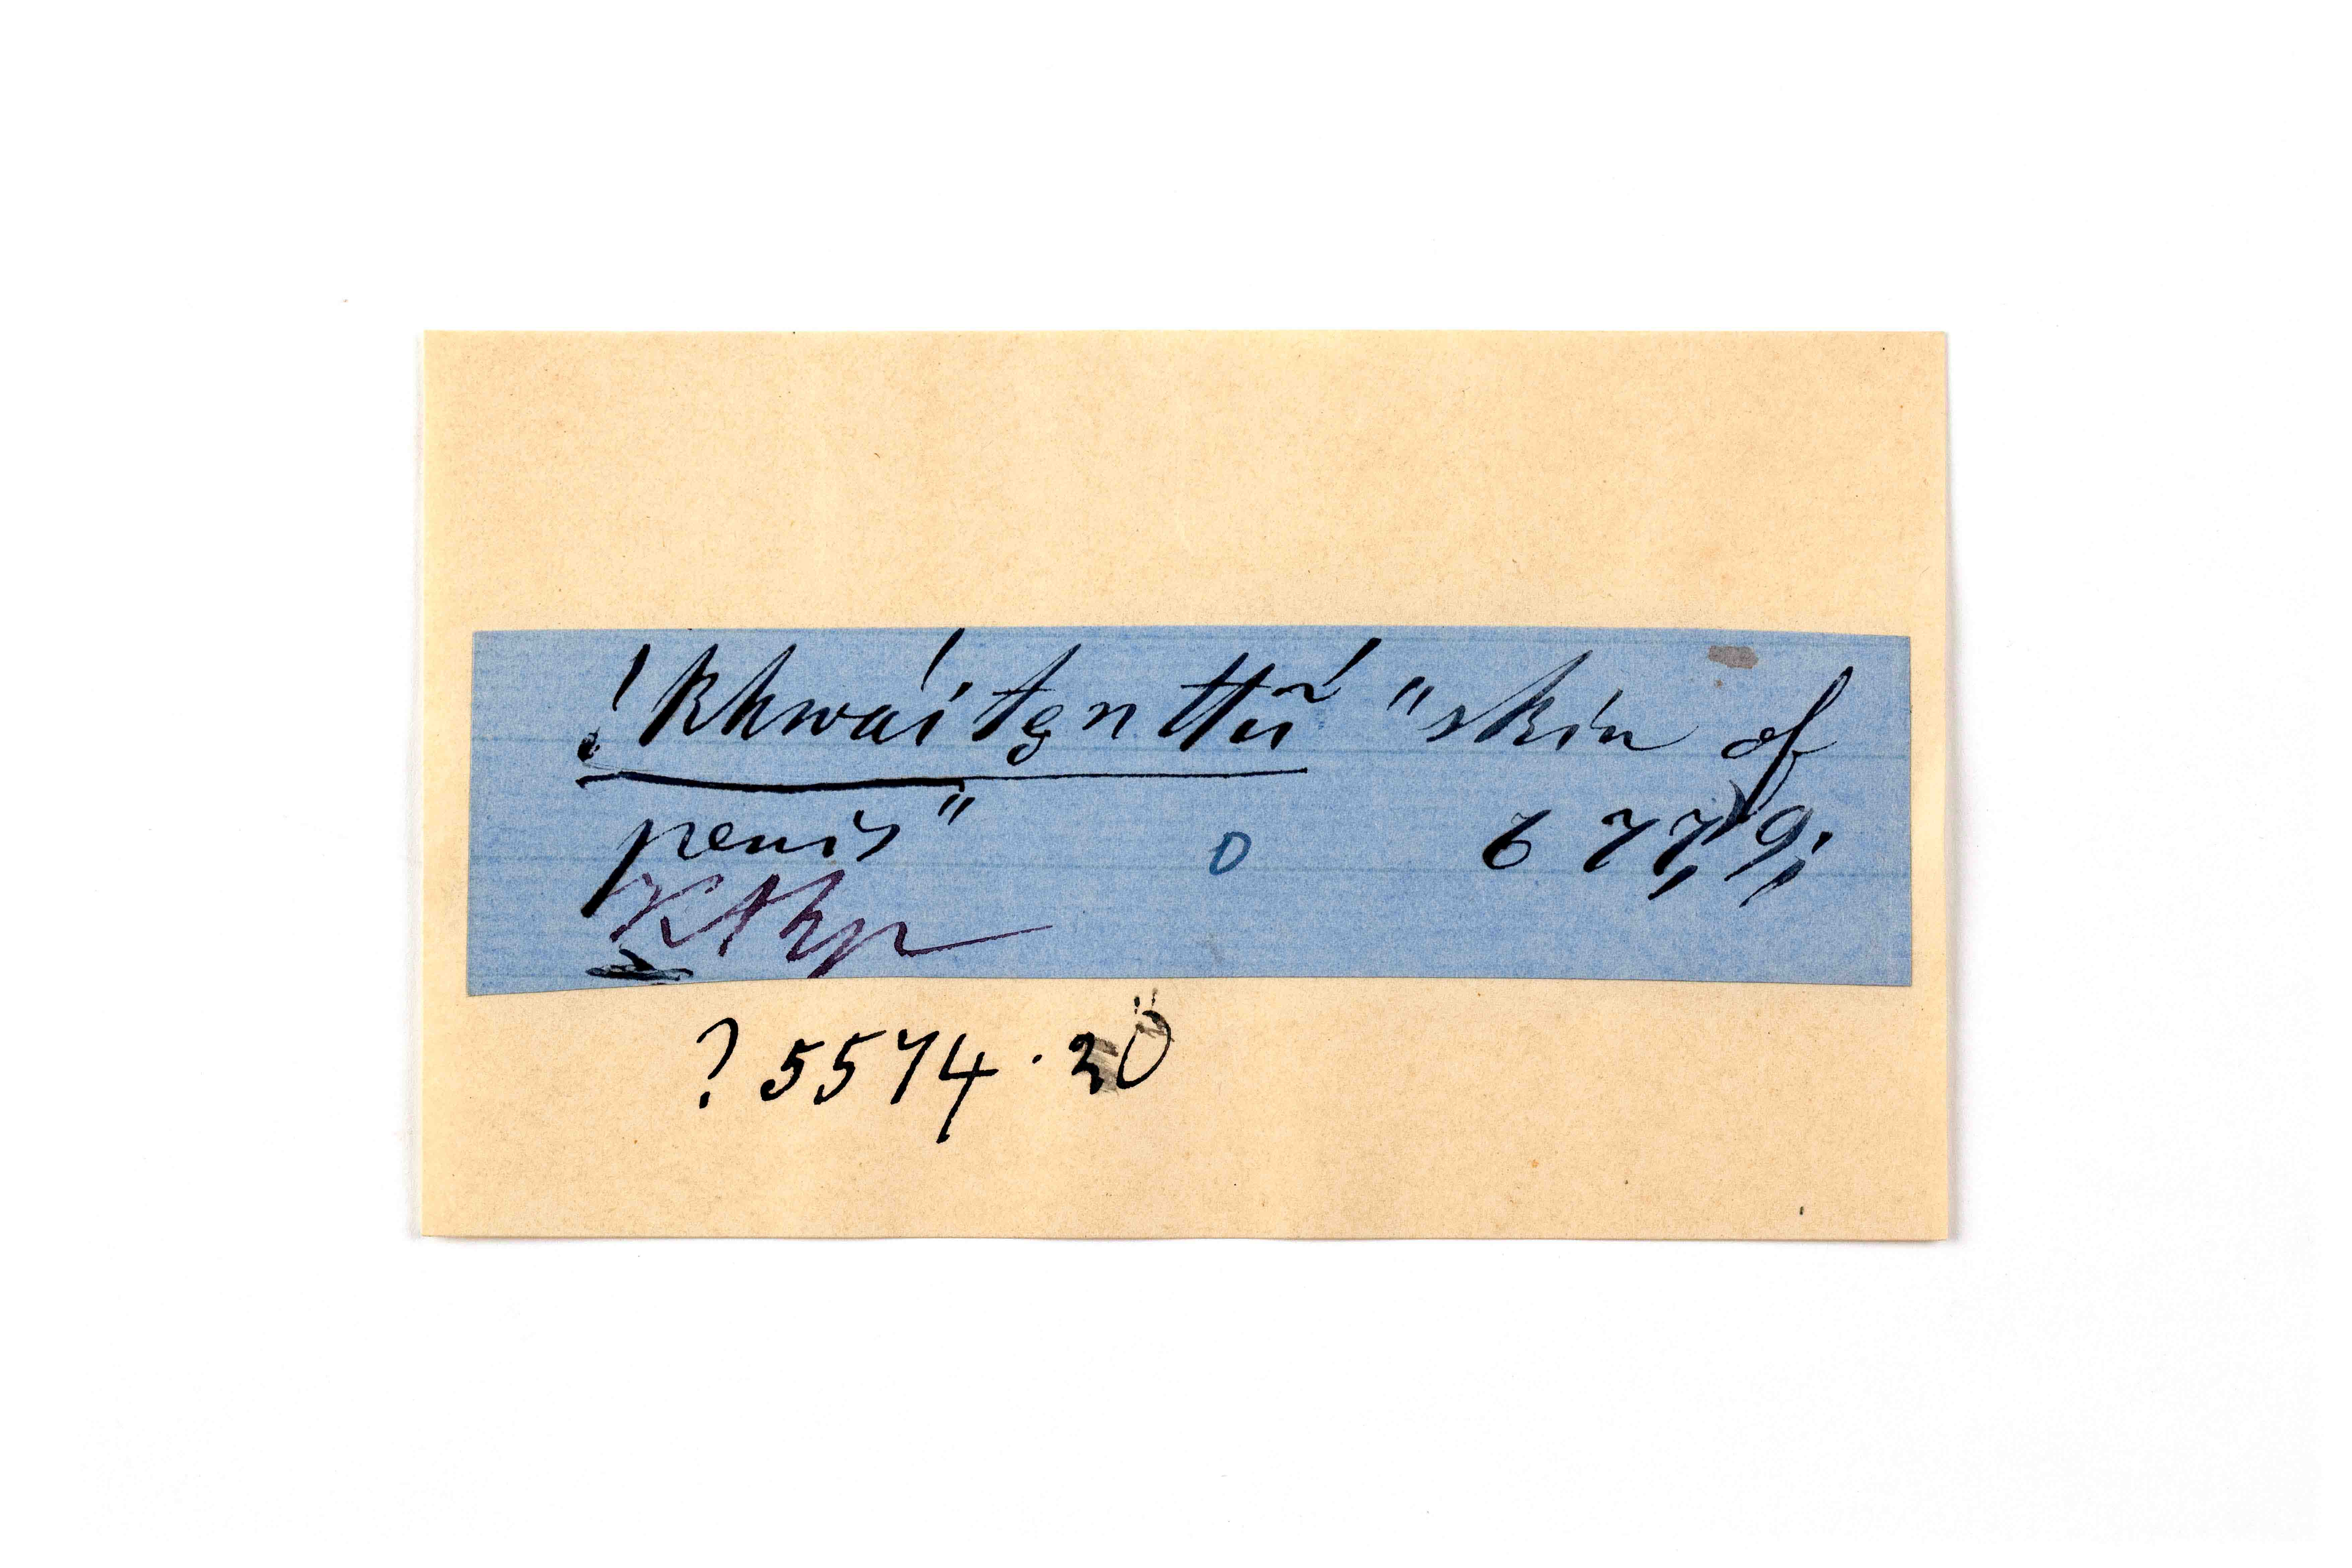 !khwái tgn ttŭ́ "skin of
penis" 0 677, 9;
? 5574 . 20